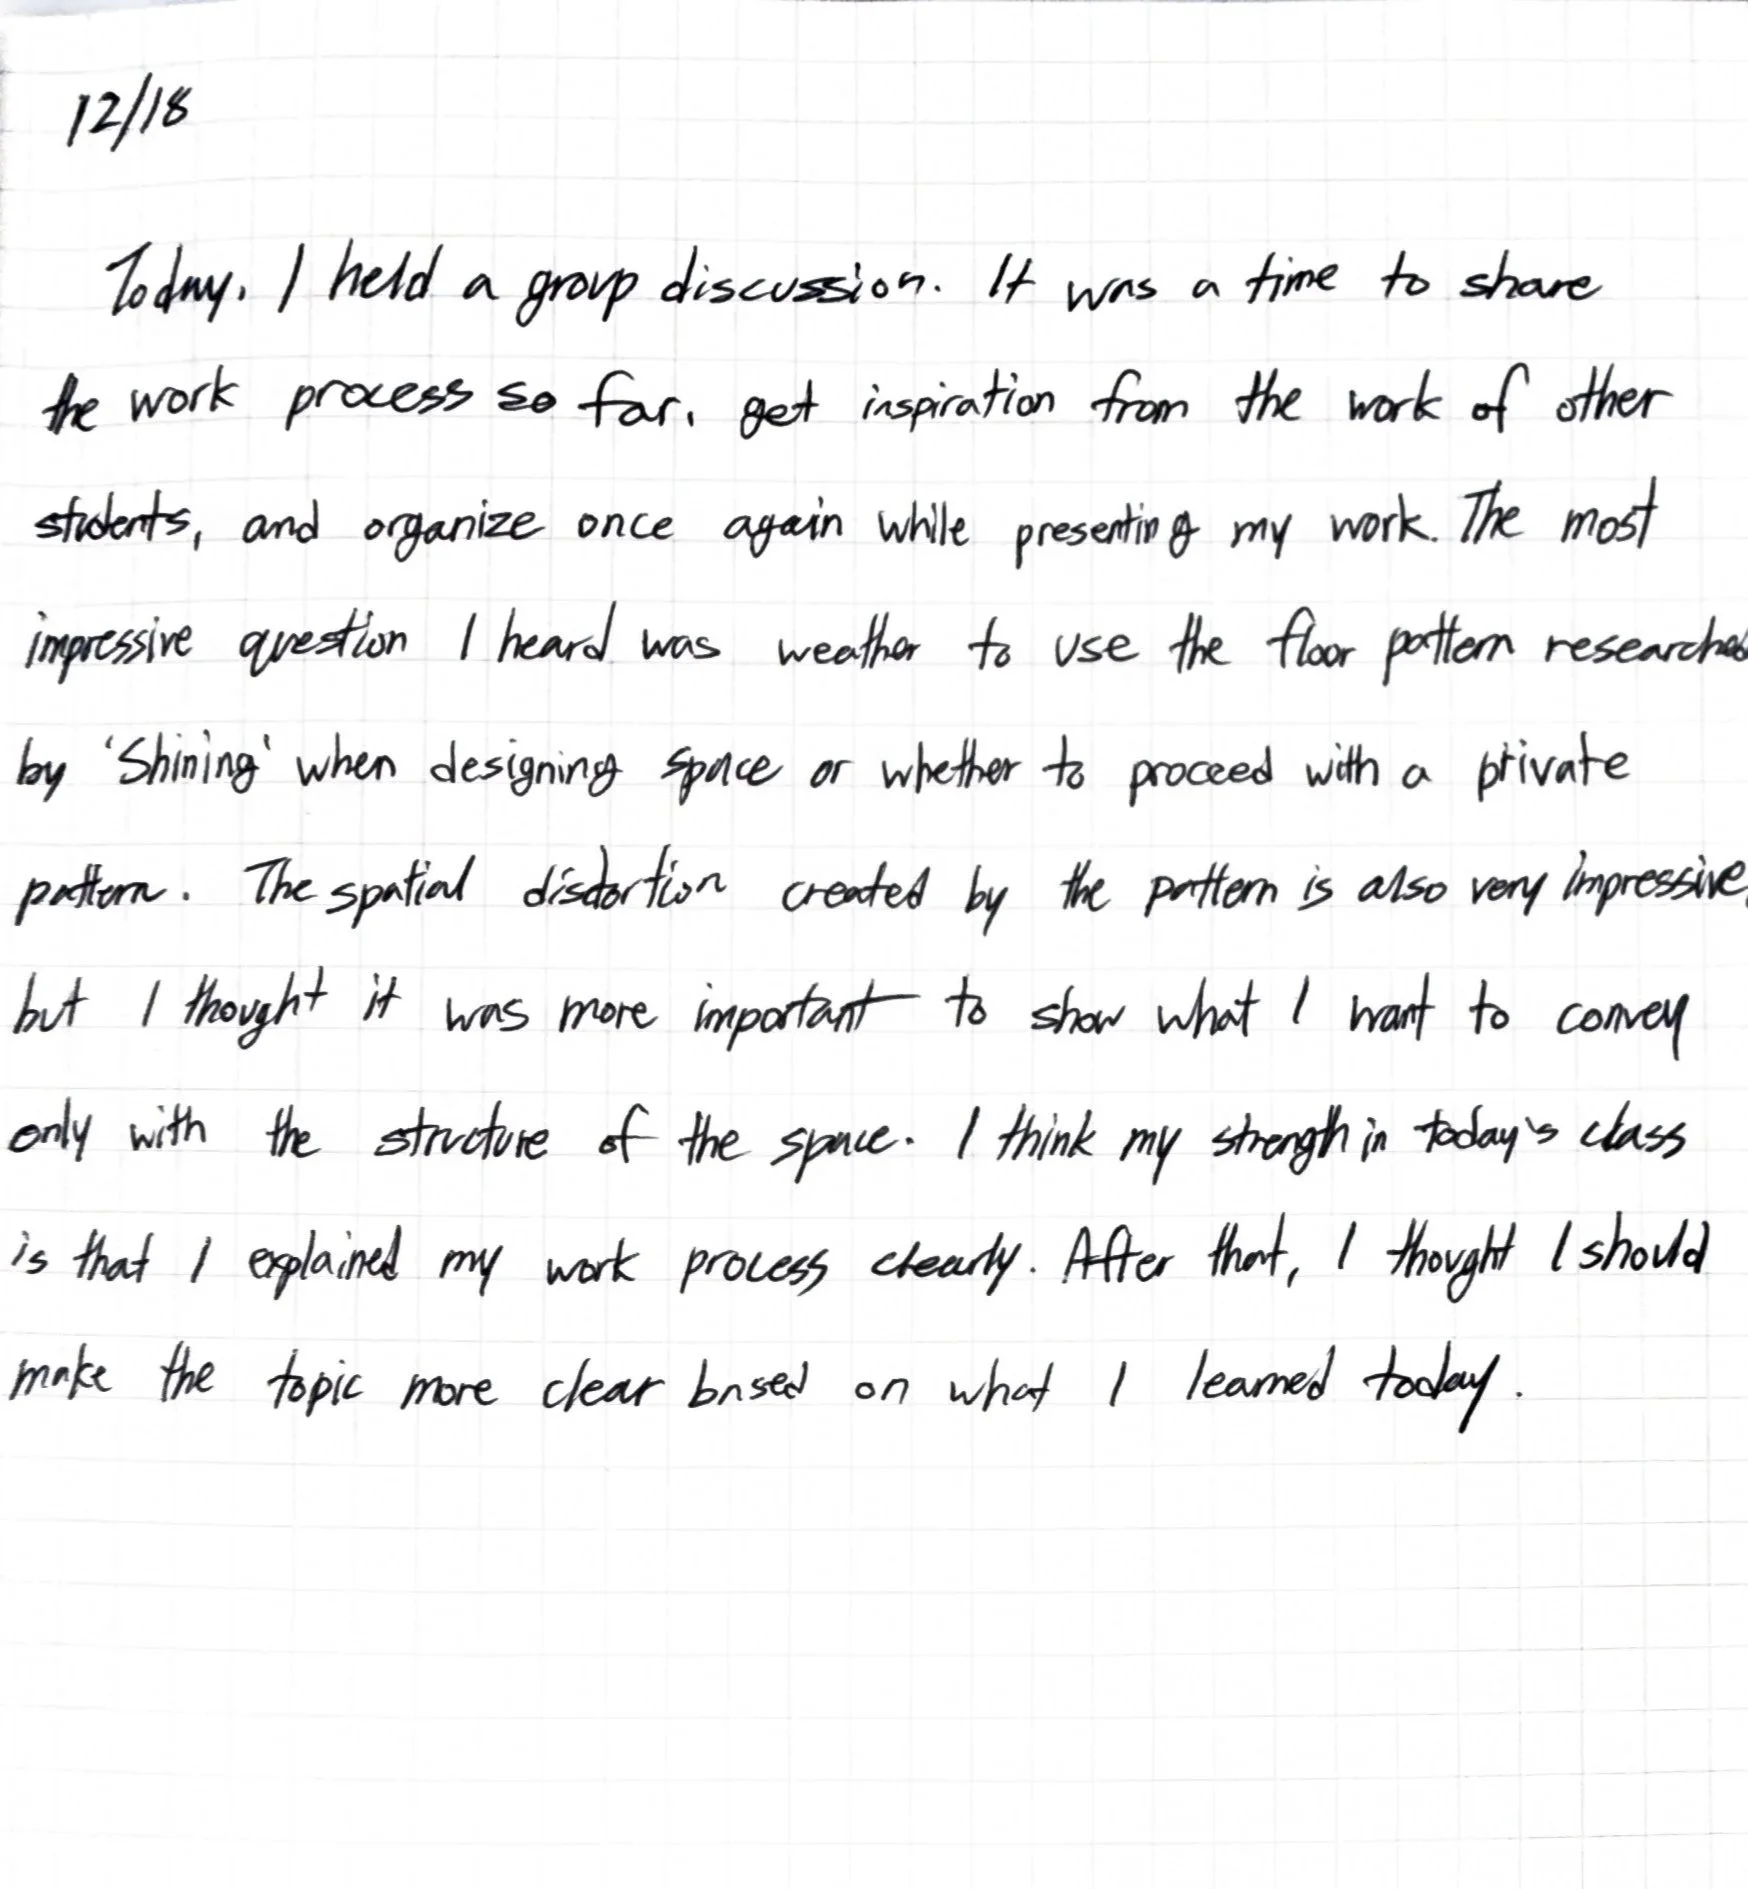 12/18
Today, I held a group discussion. It was a time to share
the work process so far, get inspiration from the work of other
students, and organize once again while presenting my work. The most
impressive question I heard was weather to use the floor pattern researched
by 'Shining' when designing space or whether to proceed with a private
pattern. The spatial disdortion created by the pattern is also very impressive,
but I thought it was more important to show what I want to convey
only with the structure of the space. I think my strength in today's class
is that I explained my work process clearly. After that, I thought I should
make the topic more clear based on what I learned today.